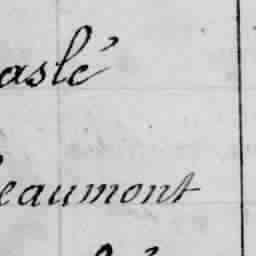 aslé
eaumont